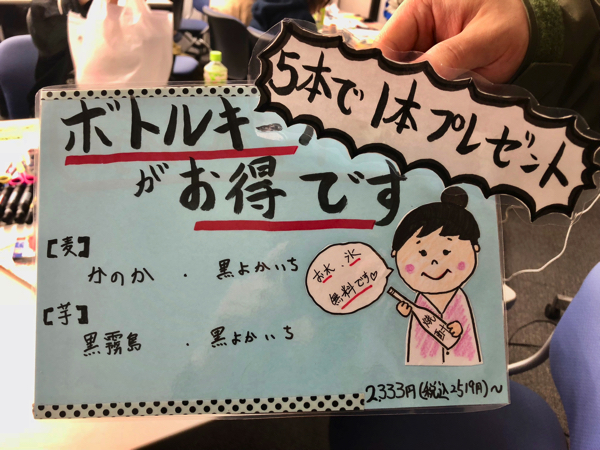 5本で1本プレゼント
ボトルキー
がお得です
【麦】
かのか ・ 黒よかいち
【芋】
黒霧島 ・ 黒よかいち
お水・氷
無料です♡
焼酎
2,333円(税込2519円)~